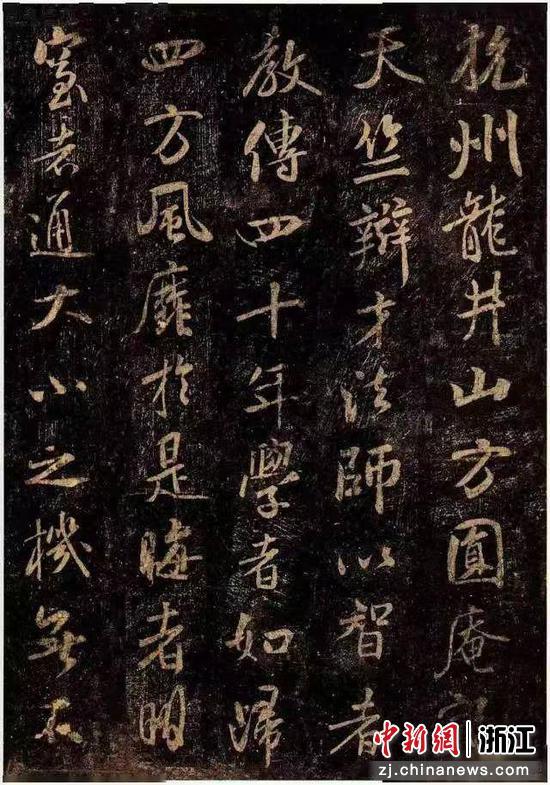 杭州龍井山方圓庵記
天竺辯才法師以智者
教傳四十年學者如歸
四方風靡於是晦者明
窒者通大小之機無不
中新網 浙江
zj.chinanews.com